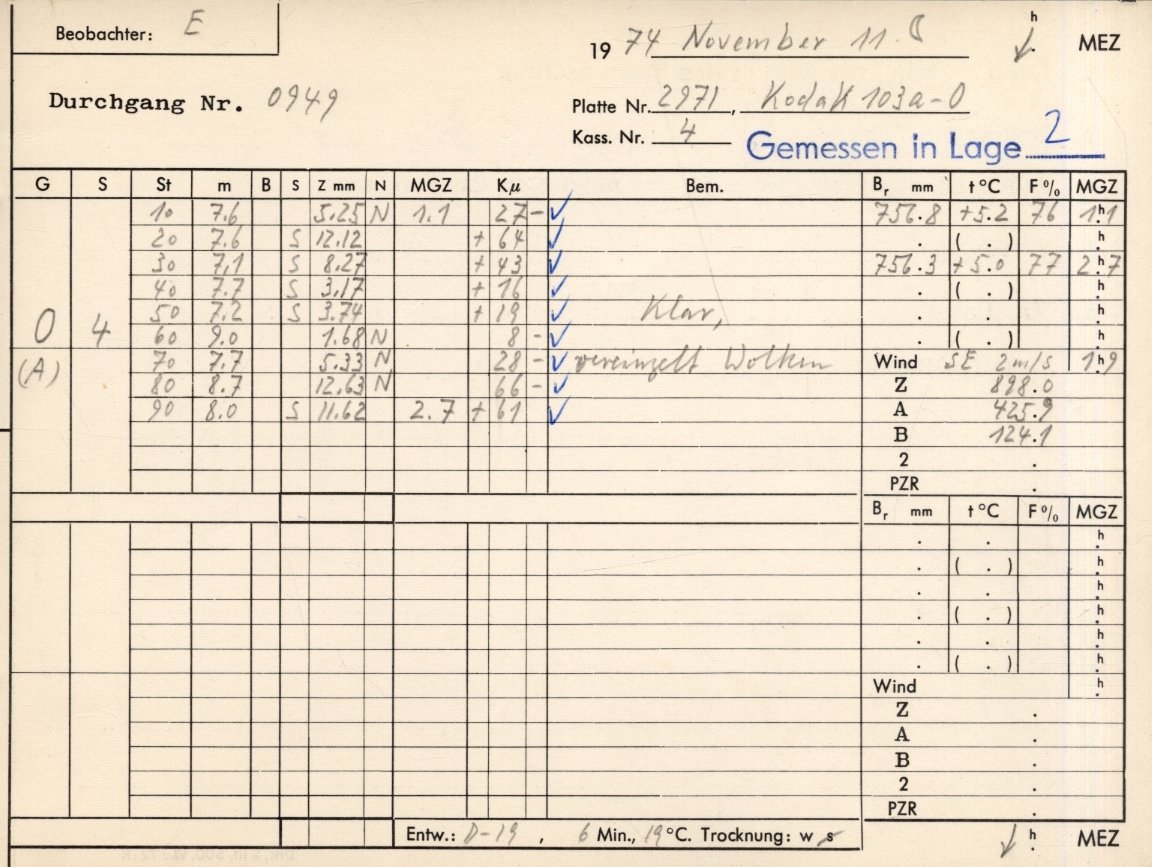 Beobachter: E
19 74 November 11. h MEZ
Durchgang Nr. 0949
Platte Nr. 2971, Kodak 103a-O
Kass. Nr. 4
Gemessen in Lage 2
G S St m B S Z mm N MGZ Kμ Bem. Br mm t °C F % MGZ
10 7.6 5.25 N 1.1 27 - ✓ 756.8 +5.2 76 1h.1
20 7.6 S 12.12 + 64 ✓ . ( . ) h.
30 7.1 S 8.27 + 43 ✓ 756.3 +5.0 77 2h.7
40 7.7 S 3.17 + 16 ✓ . ( . ) h.
0 4 50 7.2 S 3.74 + 19 ✓ Klar, . . h.
60 9.0 1.68 N 8 - ✓ . ( . ) h
(A) 70 7.7 5.33 N 28 - ✓ vereinzelt Wolken Wind SE 2 m/s 1h.9
80 8.7 12.63 N 66 - ✓ Z 898.0
90 8.0 S 11.62 2.7 + 61 ✓ A 425.9
B 124.1
2 .
PZR .
Br mm t °C F % MGZ
. . h.
. ( . ) h.
. . h.
. ( . ) h.
. . h.
. ( . ) h.
Wind h.
Z .
A .
B .
2 .
PZR .
Entw.: D-19, 6 Min., 19 °C. Trocknung: w s h. MEZ